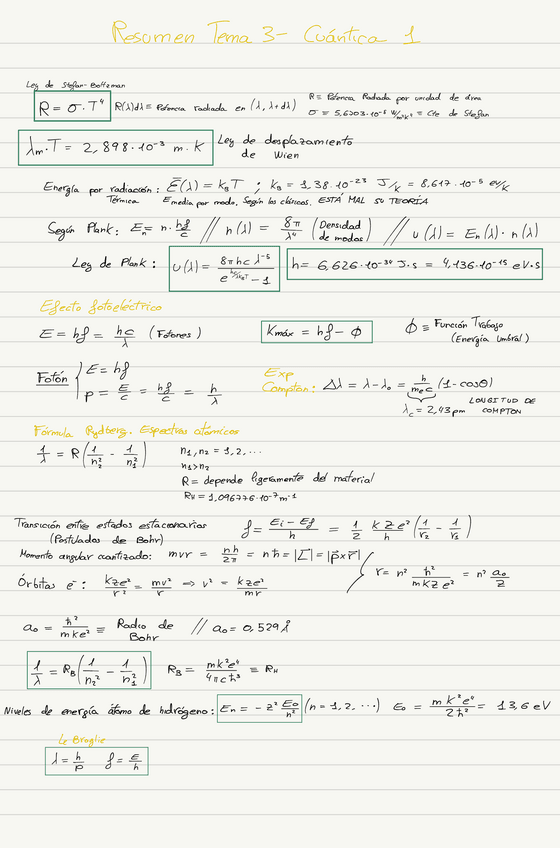 Resumen Tema 3- Cuántica 1
Ley de Stefan-Boltzman
R = σ·T⁴ R(λ)dλ ≡ Potencia radiada en (λ, λ+dλ) R ≡ Potencia Radiada por unidad de área
σ = 5,6703·10⁻⁸ W/m²K⁴ ≡ Cte de Stefan
λm·T = 2,898·10⁻³ m·K Ley de desplazamiento
de Wien
Energía por radiación: Ē(λ) = k_B T ; k_B = 1,38·10⁻²³ J/K = 8,617·10⁻⁵ eV/K
Térmica E media por modo. Según los clásicos. ESTÁ MAL SU TEORÍA
Según Plank: En = n·hf/c // n(λ) = 8π/λ⁴ (Densidad de modos) // u(λ) = En(λ)·n(λ)
Ley de Plank: u(λ) = 8πhcλ⁻⁵/(e^(hc/λk_BT) − 1) h = 6,626·10⁻³⁴ J·s = 4,136·10⁻¹⁵ eV·s
Efecto fotoeléctrico
E = hf = hc/λ (Fotones) Kmáx = hf − ϕ ϕ ≡ Función Trabajo
(Energía umbral)
Fotón { E = hf
p = E/c = hf/c = h/λ
Exp
Compton: Δλ = λ−λ₀ = h/(m_e c) (1−cosθ)
λc = 2,43 pm LONGITUD DE
COMPTON
Fórmula Rydberg. Espectros atómicos
1/λ = R(1/n₂² − 1/n₁²) n₁, n₂ = 1, 2, ...
n₁>n₂
R = depende ligeramente del material
R_H = 1,096776·10⁻⁷ m⁻¹
Transición entre estados estacionarias f = (Ei − Ef)/h = 1/2 kZe²/h (1/r₂ − 1/r₁)
(Postulados de Bohr)
Momento angular cuantizado: mvr = nh/2π = nħ = |L⃗| = |p⃗×r⃗|
Órbitas e⁻: kZe²/r² = mv²/r ⇒ v² = kZe²/mr / r = n² ħ²/(mkZe²) = n² a₀/Z
a₀ = ħ²/(mke²) ≡ Radio de Bohr // a₀ = 0,529 Å
1/λ = R_B(1/n₂² − 1/n₁²) R_B = mk²e⁴/(4πcħ³) ≡ R_H
Niveles de energía átomo de hidrógeno: En = −Z² E₀/n² (n = 1, 2, ...) E₀ = mk²e⁴/2ħ² = 13,6 eV
Le Broglie
λ = h/p f = E/h